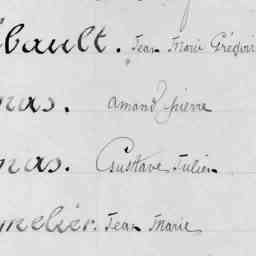 bault. Jean Marie Grégoir
mas. amand pierre
mas. Gusttave Julien
melier. Jean Marie